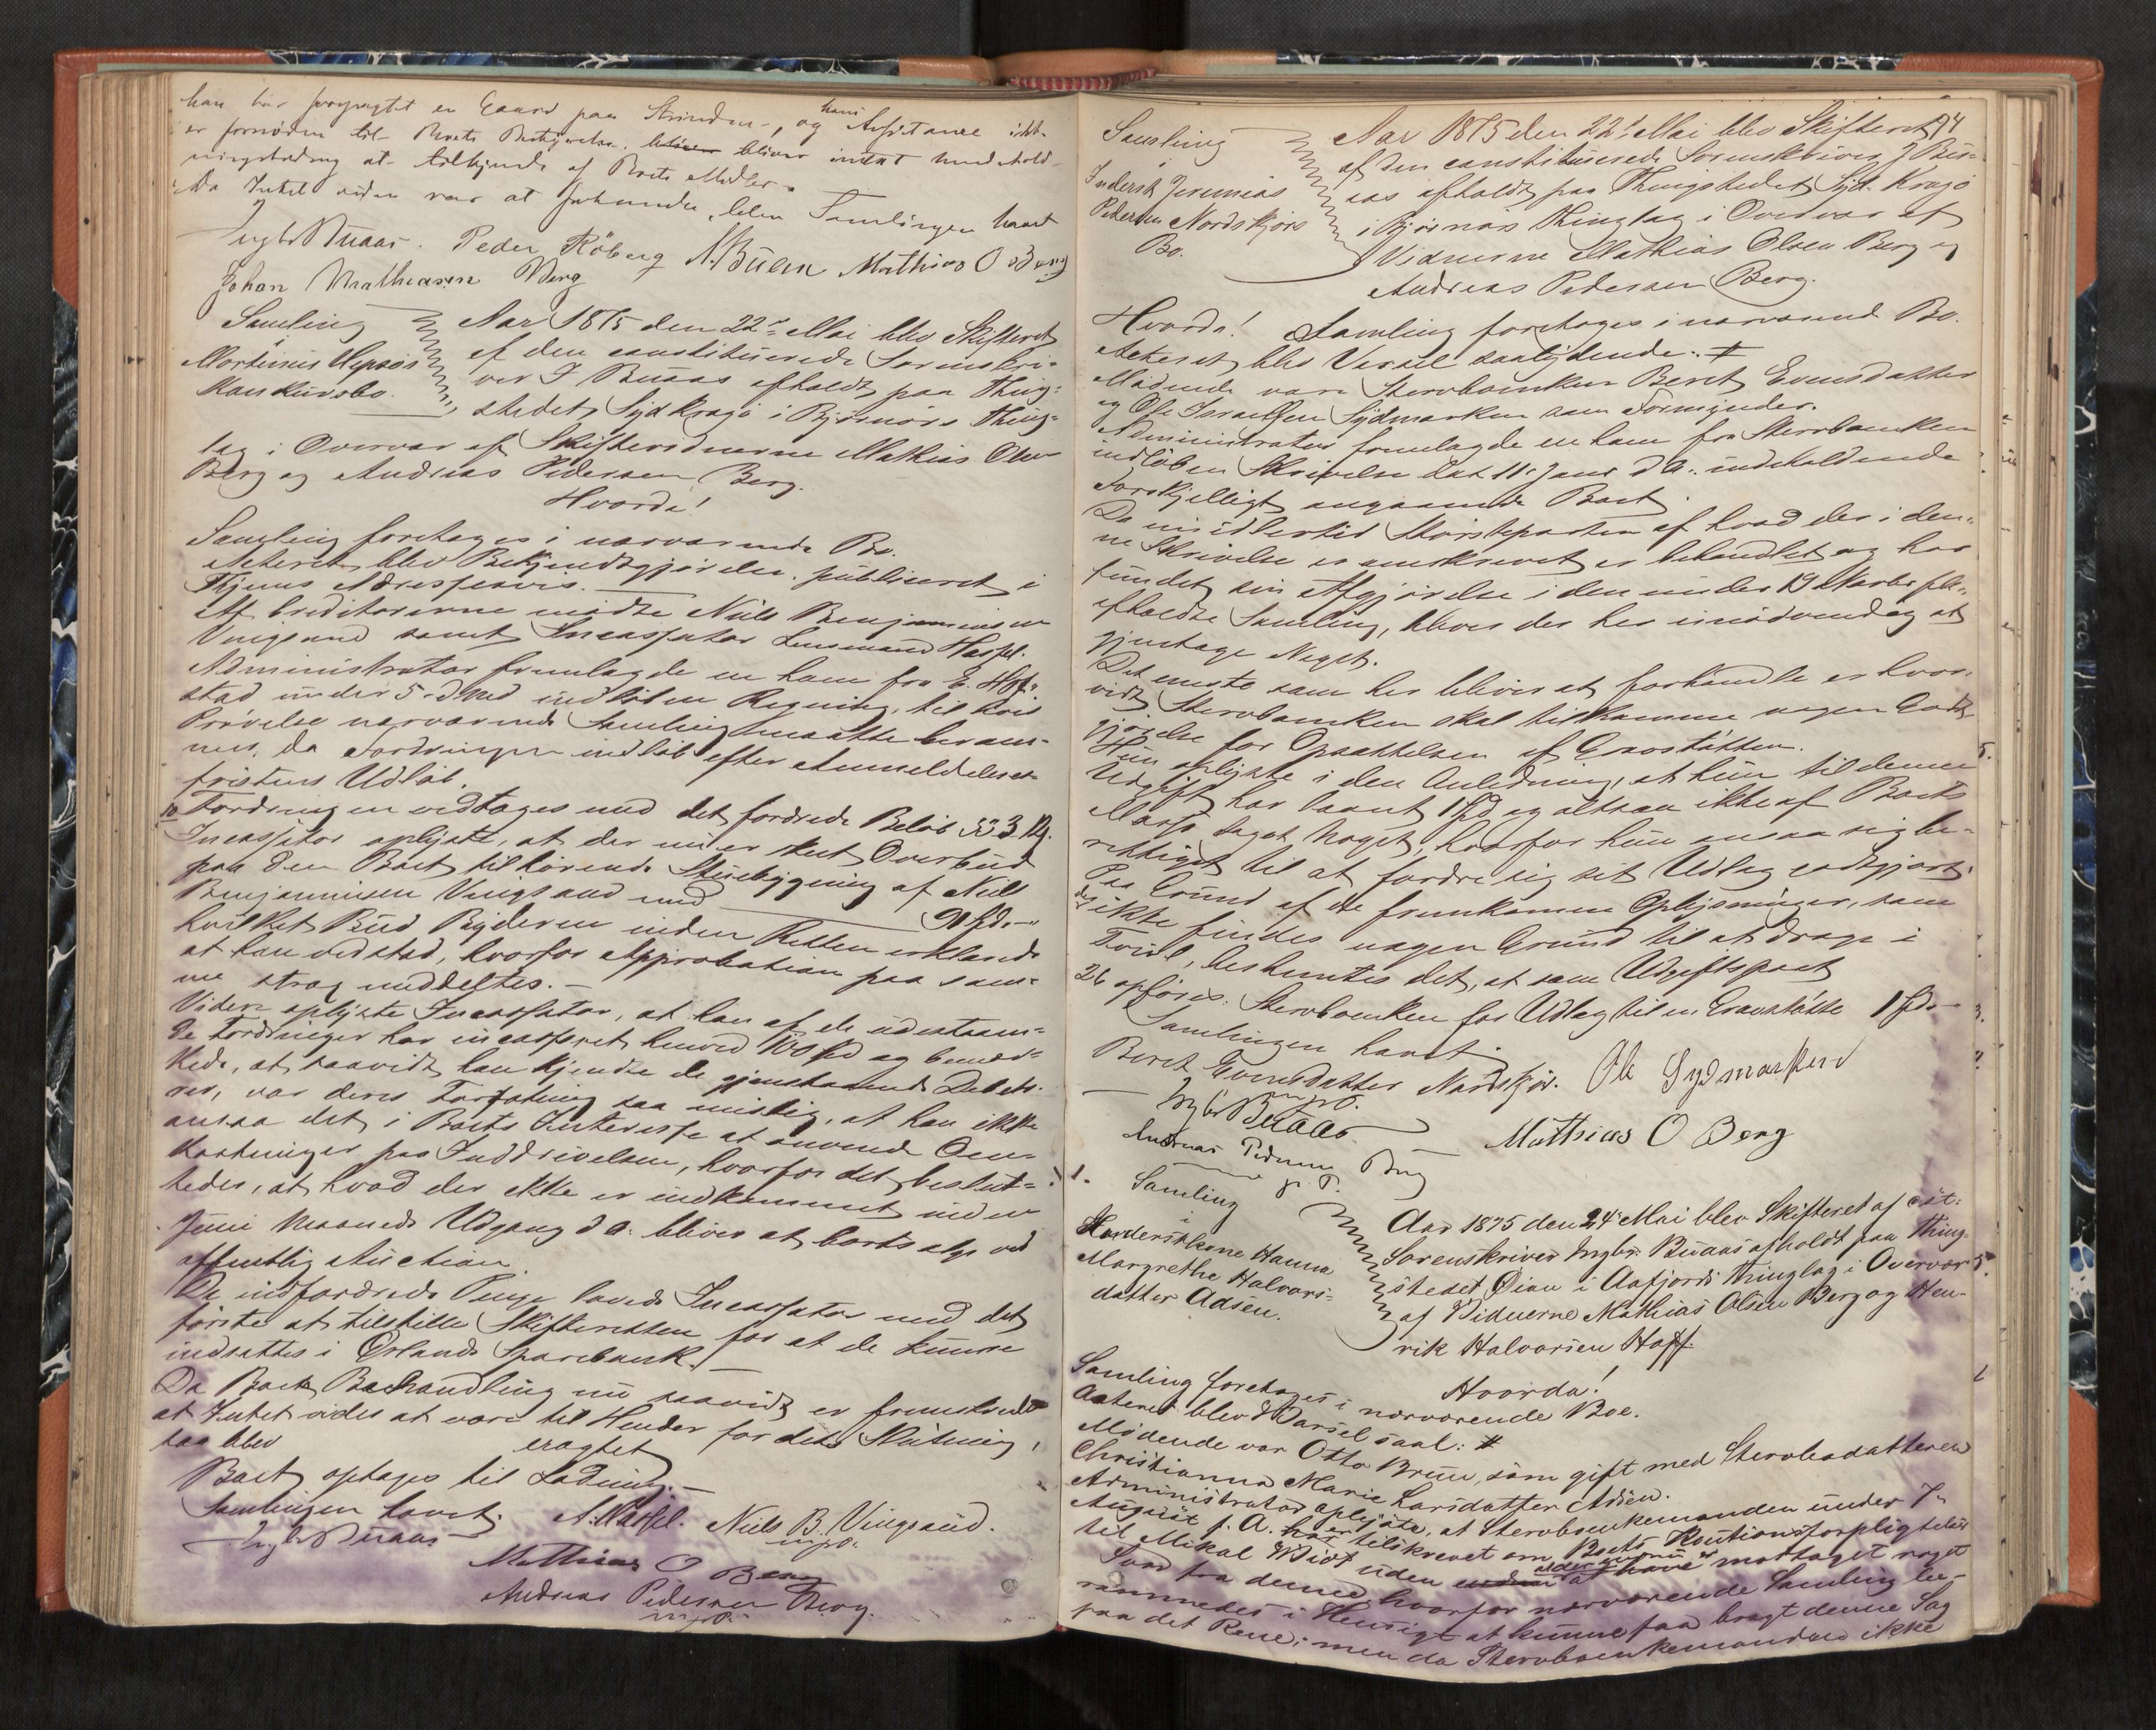 han har forpagtet en Gaard paa Strinden, og hans Assistance ikke
er fornöden til Boets Bestyrelse bliver intet Underhold-
ningsbidrag at tilkjende af Boets Midler.
Da Intet videre var at forhandle, blev Samlingen hævet
Ingbr Buaas. Peder Röberg N. Buen Mathias O Berg
Johan Mathiasen Berg
Samling
i
Mortinus Hepsös
Konkursbo.
Aar 1875 den 22de Mai blev Skifteret
af den constituerede Sorenskri-
ver I Buaas afholdt paa Thing-
stedet Syd Kragö i Björnörs Thing-
lag i Overvær af Skiftevidnerne Mathias Olsen
Berg og Andreas Pedersen Berg.
Hvorda!
Samling foretages i nærværende Bo.
Acteret blev Bekjendtgjörelse, publiceret i
Thjems Adresseavis.
Af Creditorerne mödte Niels Benjaminsen
Vingsand samt Incassator Lensmand Hassel.
Administrator fremlagde en ham fra E. Hof-
stad under 5 d Md indlöben Regning, til hvis
Prövelse nærværende Samling maatte beram-
mes, da Fordringen indlöb efter Anmeldelses-
fristens Udlöb.
Fordringen vedtages med det fordrede Belöb
Incassator oplyste, at der nu er skeet Overbud
paa den Boet tilhörende Stuebygning af Niels
Benjaminsen Vingsand med
90 Spd. "
hvilket Bud Byderen inden Retten erklærede
at han vedstod, hvorfor Approbation paa sam-
me strax meddeltes.
Videre oplyste Incassator, at han af de udestaaen-
de Fordringer har incasseret henved 100 Spd og bemær-
kede, at saavidt han kjendte de gjenstaaende Debito-
rer, var deres Forfatning saa mislig, at han ikke
ansaa det i Boets Interesse at anvende Om-
kostninger paa Inddrivelsen, hvorfor det beslut-
tedes, at hvad der ikke er indkommet inden
Juni Maaneds Udgang d A. bliver at bortsælge ved
offentlig Auction.
De indfordrede Penge lovede Incassator med det
förste at tilstille Skifteretten for at de kunne
indsættes i Örlands Sparebank.
Da Boets Behandling nu saavidt er fremskredet
at Intet vides at være til Hinder for dets Slutning,
saa blev eragtet
Boet optages til Lodning.
Samlingen hævet. A. Hassel. Niels B. Vingsand.
Ingbr Buaas m. p. P.
Mathias O Berg
Andreas Pedersen Berg.
m. p. P.
94
Samling
i
Inderst Jeremias
Pedersen Nordskjörs
Bo.
Aar 1875 den 22de Mai blev Skifteret
af den constituerede Sorenskriver I Bu-
aas afholdt paa Thingstedet Syd Kragö
i Björnörs Thinglag i Overvær af
Vidnerne Mathias Olsen Berg og
Andreas Pedersen Berg.
Hvorda! Samling foretages i nærværende Bo.
Acteret blev Varsel saalydende: #
Mödende var Stervboenken Beret Evensdatter
og Ole Israelsen Sydmarken som Formynder.
Administrator fremlagde en ham fra Stervboenken
indlöben Skrivelse dat 11 Janr d A. indeholdende
Forskjelligt angaaende Boet.
Da imidlertid Störsteparten af hvad der i den-
ne Skrivelse er anskrevet er behandlet og har
fundet sin Afgjörelse i den under 19 Novbr f A.
afholdte Samling, bliver det her unödvendig at
gjentage Noget.
Det eneste som her bliver at forhandle er hvor-
vidt Stervboenken skal tilkomme nogen Godt-
gjörelse for Opsættelsen af Gravstötten.
Hun oplyste i den Anledning, at hun til denne
Udgift har laant 1 Spd og altsaa ikke af Boets
Masse taget Noget, hvorfor hun ansaa sig be-
rettiget til at fordre sig sit Udlæg godtgjort.
Paa Grund af de fremkomne Oplysninger, som
der ikke findes nogen Grund til at drage i
Tvivl, bestemtes det, at som Udgiftspost
26 opföres: Stervboenken for Udlæg til en Gravstötte 1 Spd.
Samlingen hævet.
Beret Evensdatter Nordskjör. Ole Sydmarken
m. p. P.
Ingbr Buaas. Mathias O Berg
Andreas Pedersen Berg
m. p. P.
Samling
i
Handelskone Hanna
Margrethe Halvors-
datter Adsen.
Aar 1875 den 24 Mai blev Skifteret af cst:
Sorenskriver Ingbr Buaas afholdt paa Thing-
stedet Öian i Aafjords Thinglag i Overvær
af Vidnerne Mathias Olsen Berg og Hen-
rik Halvorsen Hoff.
Hvorda!
Samling foretages i nærværende Boe.
Acteret blev Varsel saal: #
Mödende var Otto Bruu, som gift med Stervbodatteren
Christianna Marie Larsdatter Adsen.
Administrator oplyste, at Stervboenkemanden under 7
August f. A. er tilskrevet om Boets Kautionsforpligtelse
til Mikal Wiot uden at der endnu er mottaget noget
Svar fra denne, hvorfor nærværende Samling be-
rammedes i Hensigt at kunne faa bragt denne Sag
paa det Rene; men da Stervboenkemanden ikke